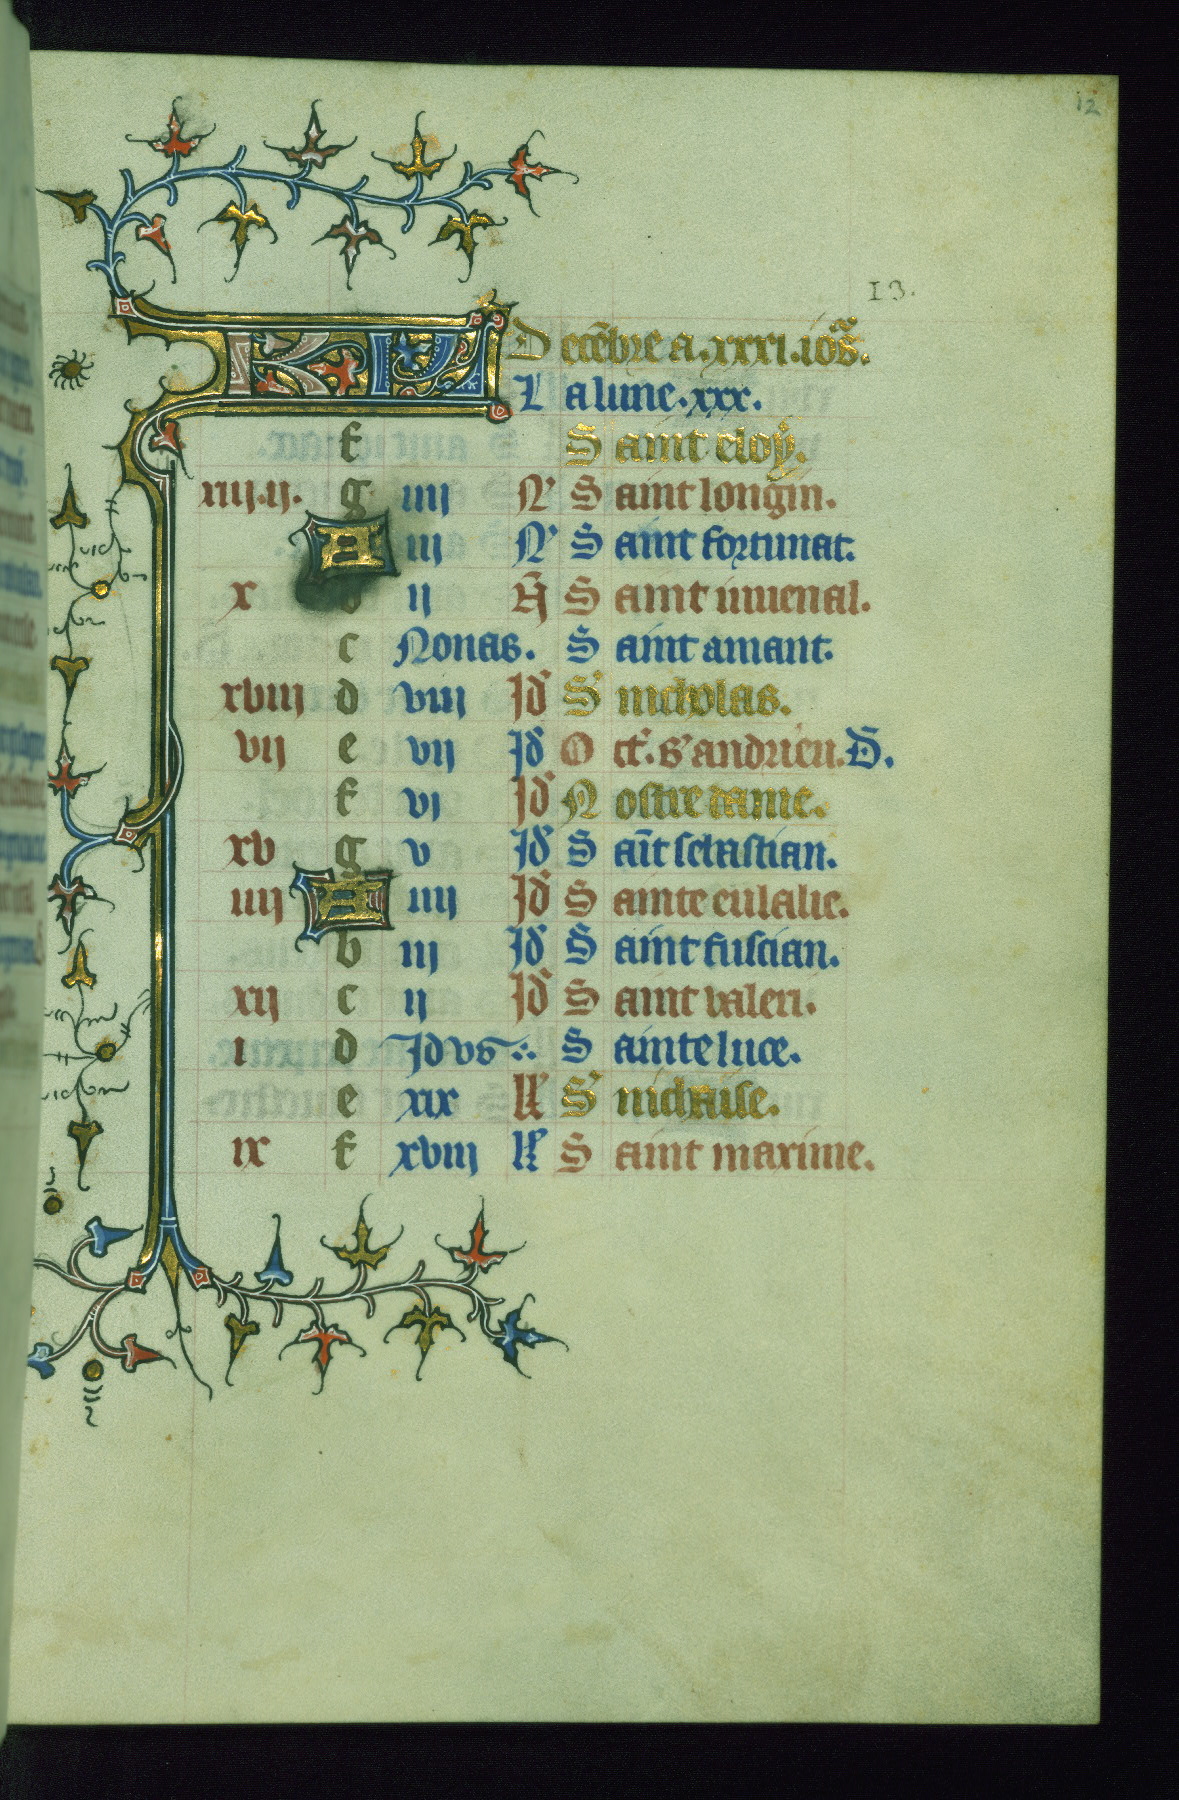 12
13.
KL Decēbre a.xxxi.iors.
La lune.xxx.
f Saint eloy.
xiiii.ij. g iiij N' Saint longin.
A iij N' Saint fortunat.
x b ij N' Saint iuuenal.
c Nonas. Saint amant.
xviij d viij Id' S' nicholas.
vij e vij Id' Oct'. s' andrieu. D.
f vj Id' Nostre dame.
xv g v Id' Saīt sebastian.
iiij A iiij Id' Sainte eulalie.
b iij Id' Saint fuscian.
xij c ij Id' Saint valeri.
i d Idus Sainte luce.
e xix kl' S' nichaise.
ix f xviij kl' Saint maxime.